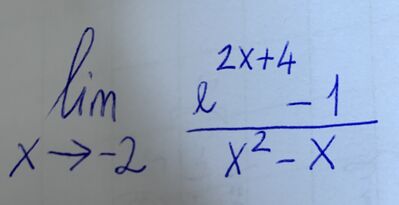 lim x→-2 (e^(2x+4) - 1) / (x² - x)